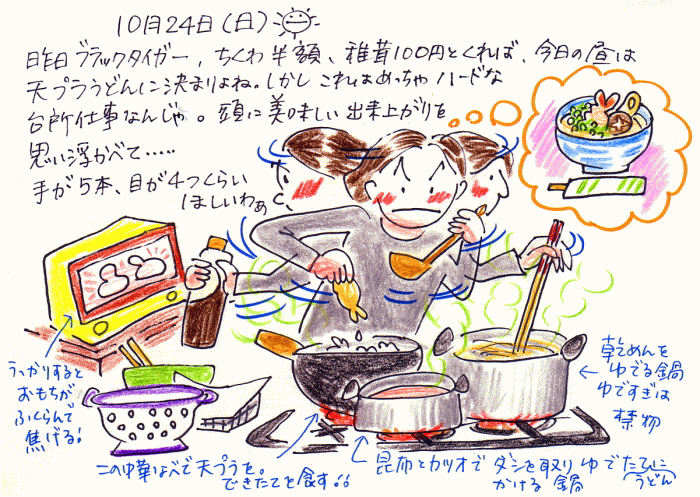 10月24日(日)
昨日ブラックタイガー、ちくわ半額、椎茸100円とくれば、今日の昼は
天プラうどんに決まりよね。しかしこれはめっちゃハードな
台所仕事なんじゃ。頭に美味しい出来上がりを
思い浮かべて・・・・・
手が5本、目が4つくらい
ほしいわぁ
うっかりすると
おもちが
ふくらんで
焦げる!
乾めんを
ゆでる鍋
ゆですぎは
禁物
この中華なべで天プラを。
できたてを食す!!
昆布とカツオでダシを取りゆでたてに
かける鍋
うどん